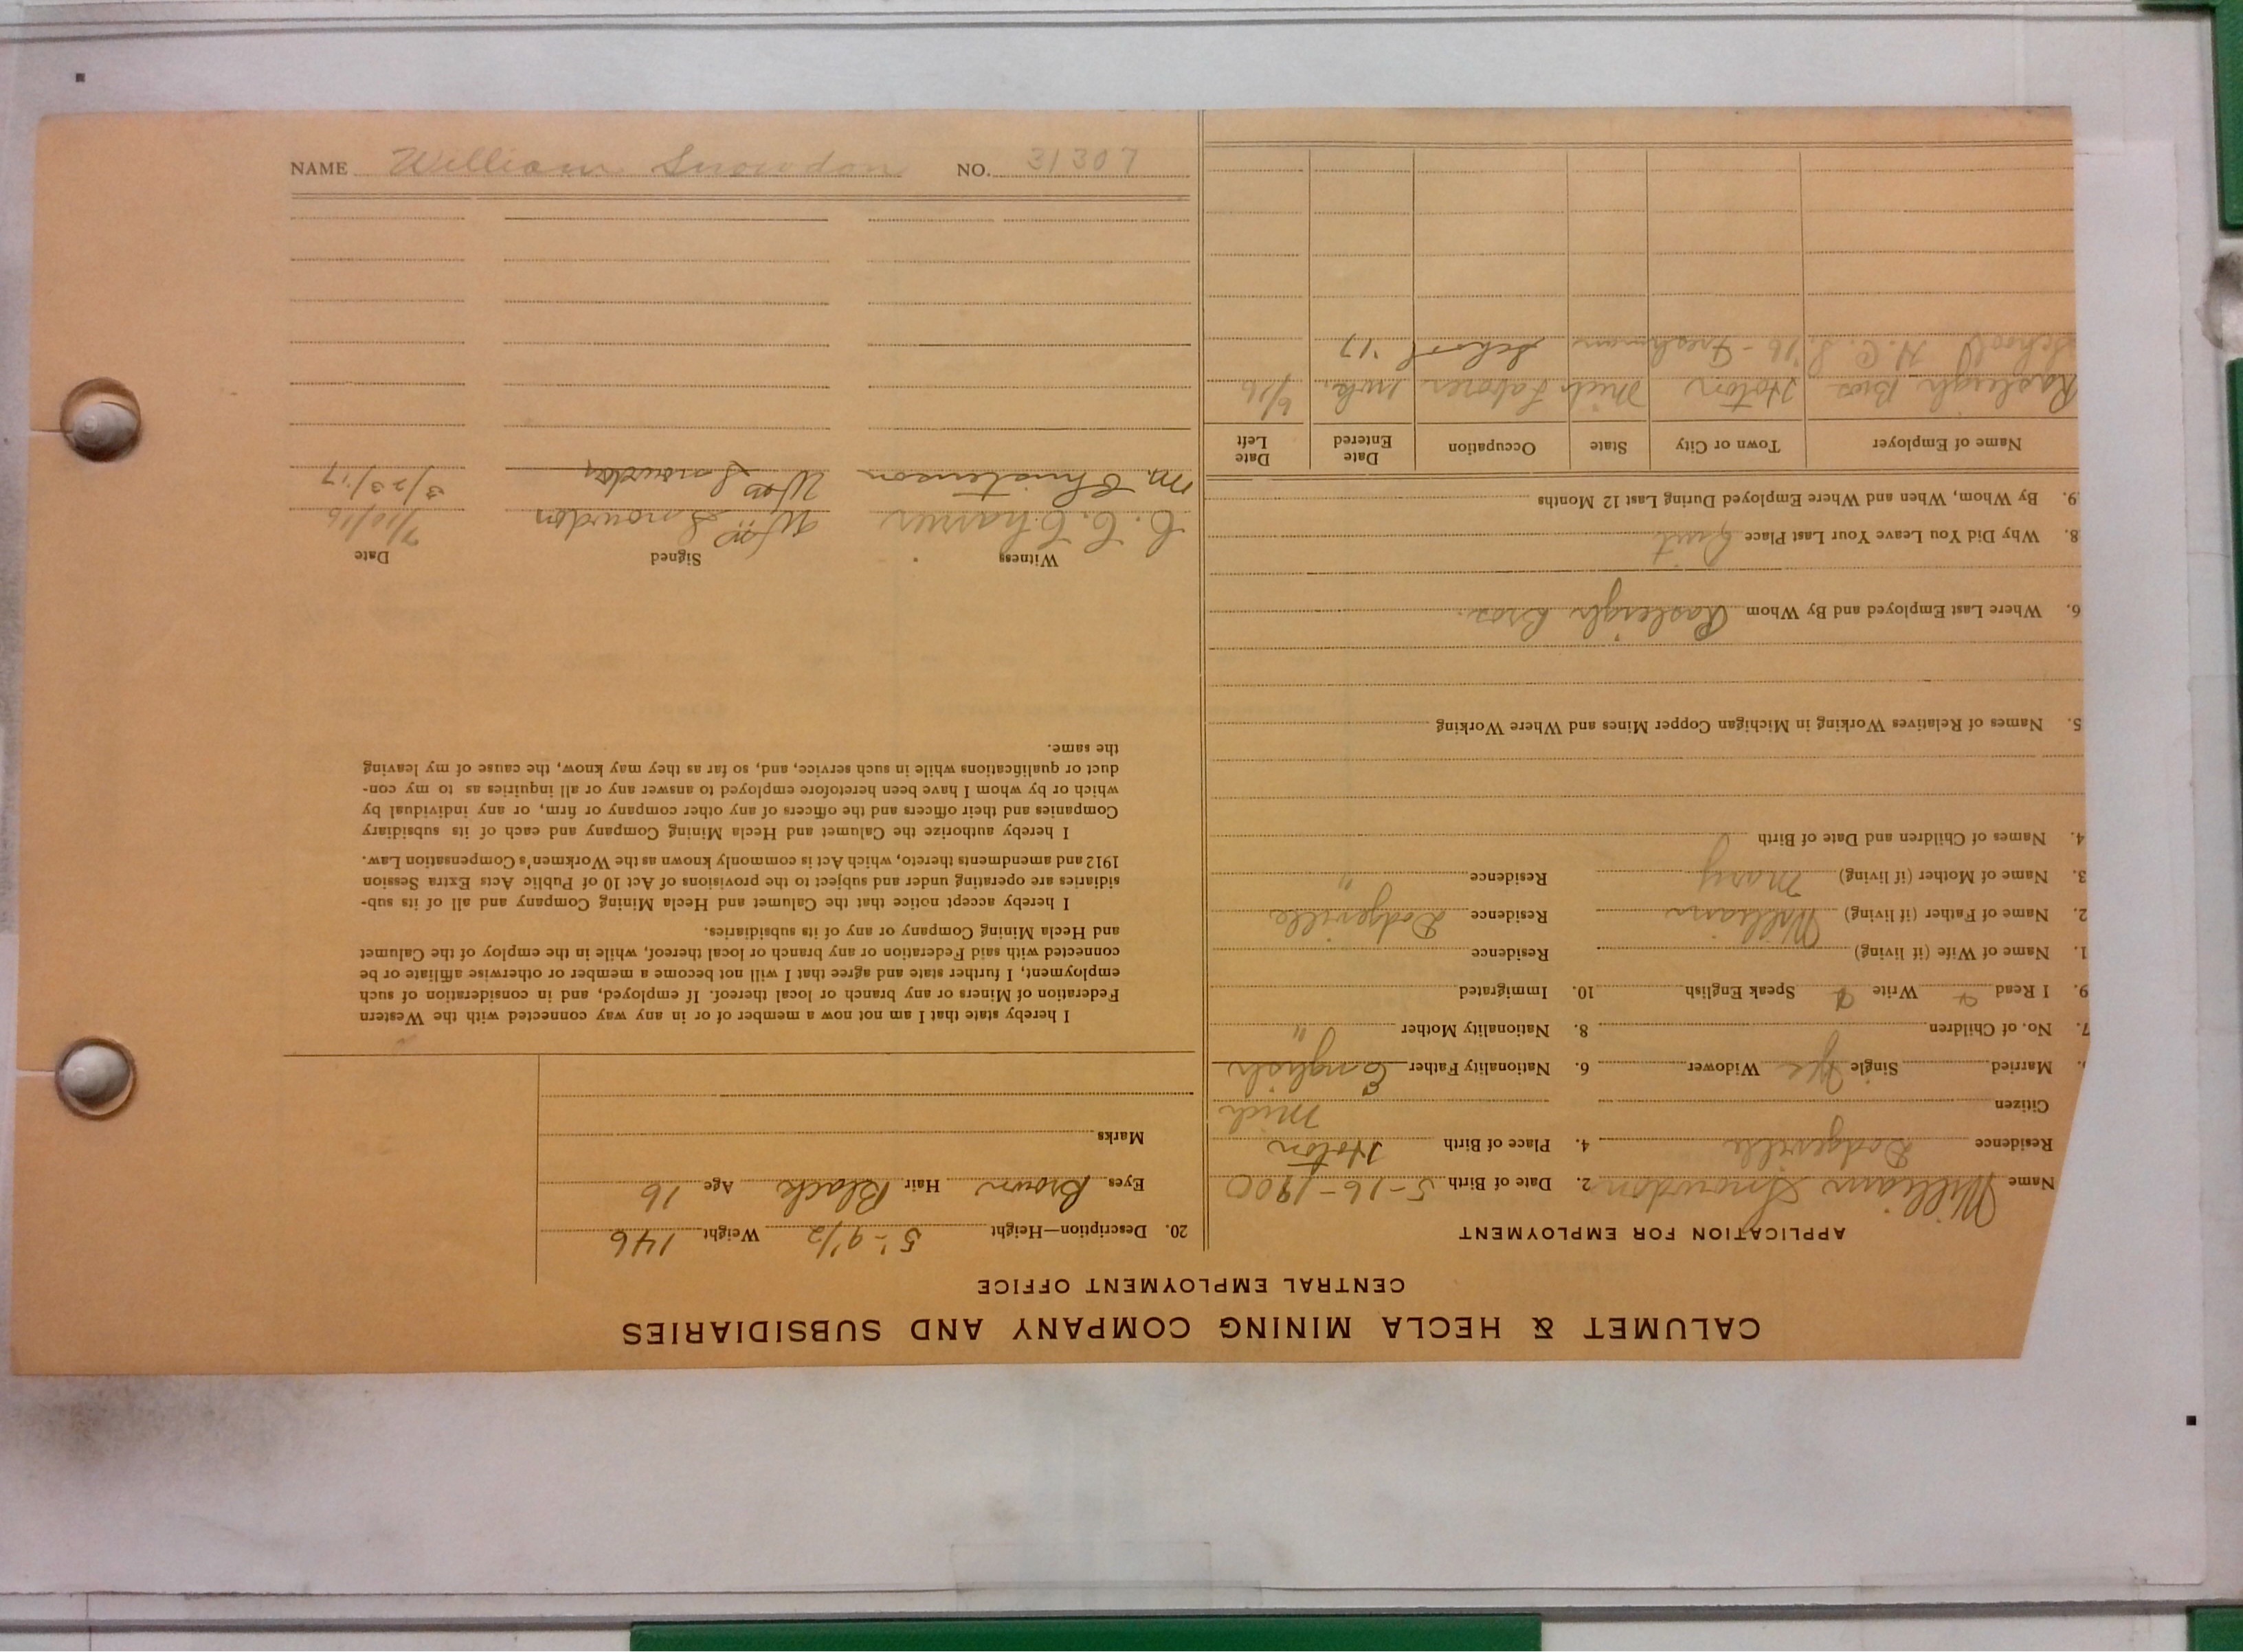 CALUMET & HECLA MINING COMPANY AND SUBSIDIARIES
CENTRAL EMPLOYMENT OFFICE
APPLICATION FOR EMPLOYMENT
Name William Snowdon 2. Date of Birth 5-16-1900
Residence Dodgeville 4. Place of Birth Hoton
Mich
Citizen
Married Single Yes Widower 6. Nationality Father English
7. No. of Children 8. Nationality Mother "
9. I Read Write Speak English 10. Immigrated
1. Name of Wife (if living) Residence
2. Name of Father (if living) William Residence Dodgeville
3. Name of Mother (if living) Mary Residence "
4. Names of Children and Date of Birth
5. Names of Relatives Working in Michigan Copper Mines and Where Working
6. Where Last Employed and By Whom Rasleigh Bros.
8. Why Did You Leave Your Last Place Quit
9. By Whom, When and Where Employed During Last 12 Months
Name of Employer Town or City State Occupation Date Entered Date Left
Rasleigh Bros Hoton Mich Laborer 1 wk. 6/16
School H.C.S. '16 - Freshman School '17
20. Description—Height 5'-9 1/2 Weight 146
Eyes Brown Hair Black Age 16
Marks
I hereby state that I am not now a member of or in any way connected with the Western
Federation of Miners or any branch or local thereof. If employed, and in consideration of such
employment, I further state and agree that I will not become a member or otherwise affiliate or be
connected with said Federation or any branch or local thereof, while in the employ of the Calumet
and Hecla Mining Company or any of its subsidiaries.
I hereby accept notice that the Calumet and Hecla Mining Company and all of its sub-
sidiaries are operating under and subject to the provisions of Act 10 of Public Acts Extra Session
1912 and amendments thereto, which Act is commonly known as the Workmen's Compensation Law.
I hereby authorize the Calumet and Hecla Mining Company and each of its subsidiary
Companies and their officers and the officers of any other company or firm, or any individual by
which or by whom I have been heretofore employed to answer any or all inquiries as to my con-
duct or qualifications while in such service, and, so far as they may know, the cause of my leaving
the same.
Witness Signed Date
C. C. Chaner Wm Snowdon 7/10/16
M. Christenson Wm Snowdon 3/23/17
NAME William Snowdon NO. 31307